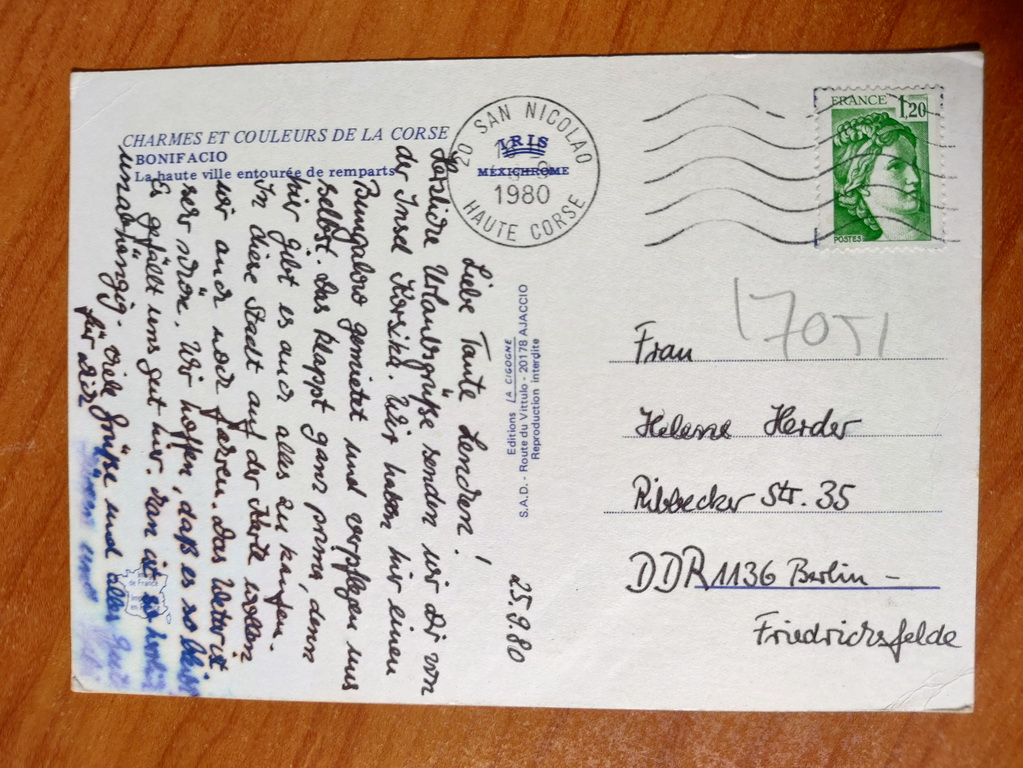 CHARMES ET COULEURS DE LA CORSE
BONIFACIO
La haute ville entourée de remparts
20 SAN NICOLAO
IRIS
MÉXICHROME
1980
HAUTE CORSE
FRANCE 1,20
POSTES
Editions LA CIGOGNE
S.A.D. - Route du Vittulo - 20178 AJACCIO
Reproduction interdite
25.9.80
Liebe Tante Lenchen!
Herzliche Urlaubsgrüße senden wir Dir von
der Insel Korsika. Wir haben hier einen
Bungalow gemietet und verpflegen uns
selbst. Das klappt ganz prima, denn
hier gibt es auch alles zu kaufen.
In diese Stadt auf der Karte wollen
wir auch noch fahren. Das Wetter ist
sehr schön. Wir hoffen, daß es so
Es gefällt uns gut hier. Man ist so
unabhängig. Viele Grüße und alles Gute
für Dich
17051
Frau
Helene Herder
Ribbecker Str. 35
DDR 1136 Berlin -
Friedrichsfelde